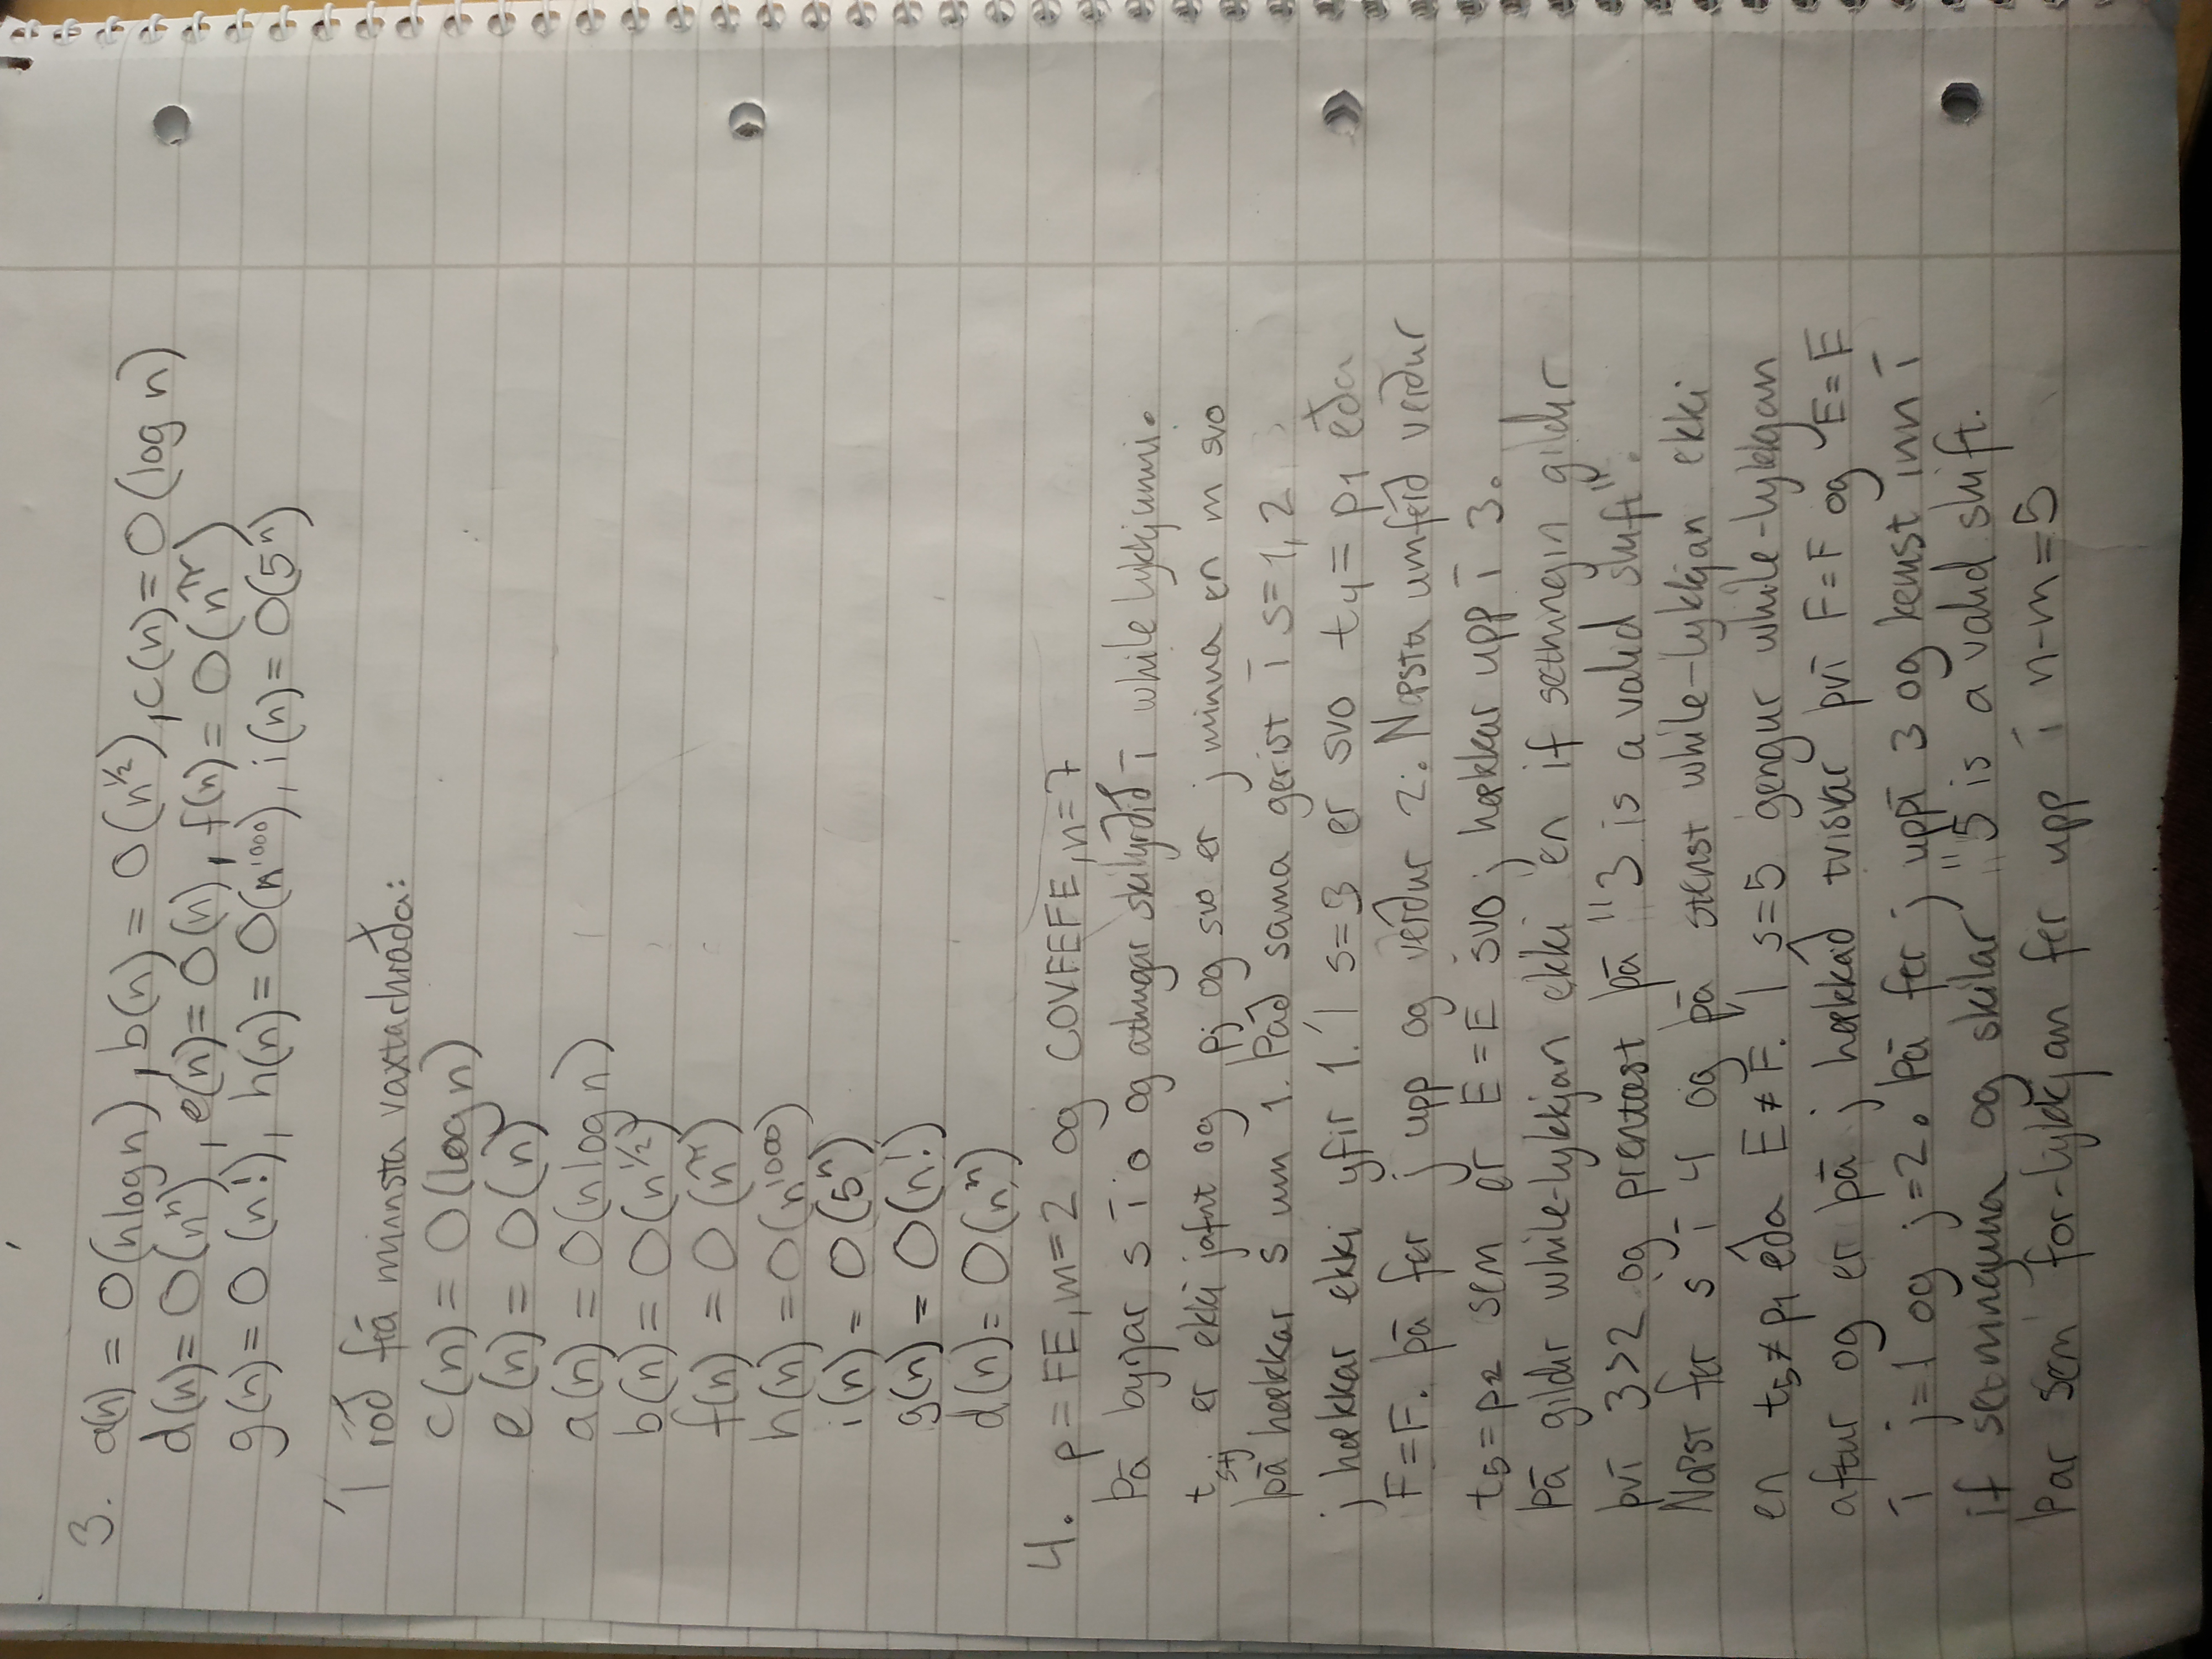 3. a(n) = O(nlogn), b(n) = O(n^½), c(n) = O(log n)
d(n) = O(nⁿ), e(n) = O(n), f(n) = O(n^π)
g(n) = O(n!), h(n) = O(n¹⁰⁰⁰), i(n) = O(5ⁿ)
Í röð frá minnsta vaxtarhraða:
c(n) = O(logn)
e(n) = O(n)
a(n) = O(nlogn)
b(n) = O(n^½)
f(n) = O(n^π)
h(n) = O(n¹⁰⁰⁰)
i(n) = O(5ⁿ)
g(n) = O(n!)
d(n) = O(nⁿ)
4. p = FE, m=2 og COVFEFE, n=7
Þá byrjar s í 0 og athugar skilyrðið í while lykkjunni.
t_{s+j} er ekki jafnt og pj og svo er j minna en m svo
þá hækkar s um 1. Það sama gerist í s=1,2
j hækkar ekki yfir 1. Í s=3 er svo t₄ = p₁ eða
F=F. þá fer j upp og verður 2. Næsta umferð verður
t₅=p₂ sem er E=E svo j hækkar upp í 3.
Þá gildir while-lykkjan ekki en if setningin gildir
því 3>2 og prentast þá "3 is a valid shift".
Næst fer s í 4 og þá stenst while-lykkjan ekki
en t₅≠p₁ eða E≠F. Í s=5 gengur while-lykkjan
aftur og er þá j hækkað tvisvar því F=F og E=E
í j=1 og j=2. Þá fer j uppí 3 og kemst inn í
if setninguna og skilar "5 is a valid shift.
Þar sem for-lykkjan fer upp í n-m=5